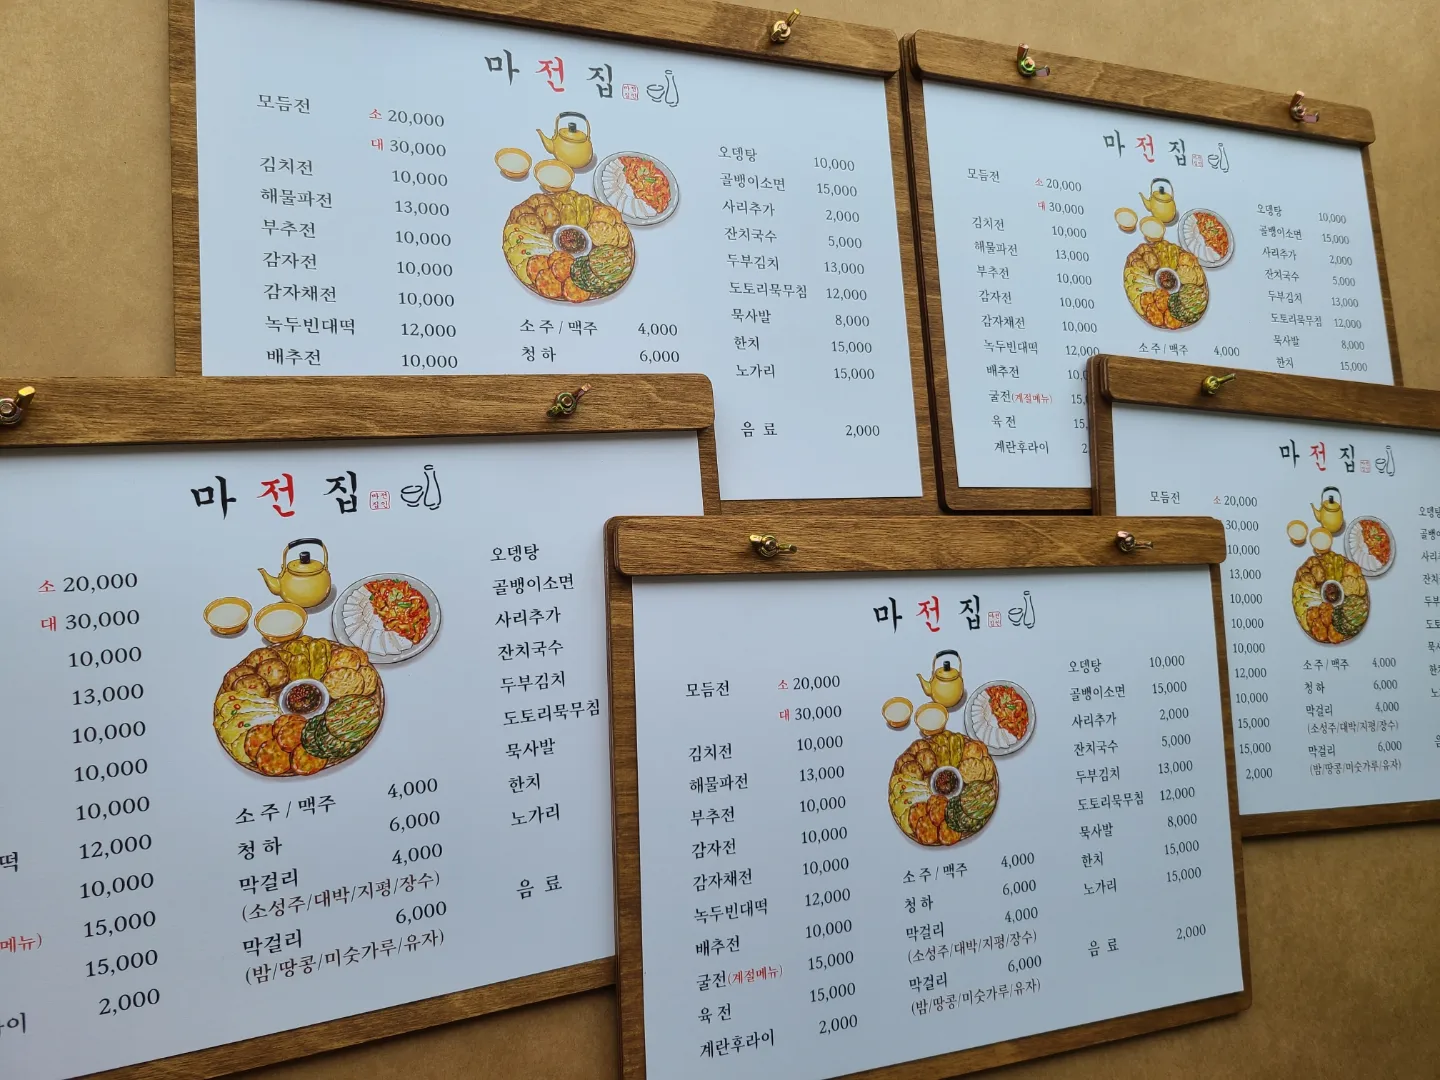 마전집
모듬전 소 20,000
대 30,000
김치전 10,000
해물파전 13,000
부추전 10,000
감자전 10,000
감자채전 10,000
녹두빈대떡 12,000
배추전 10,000
소주/맥주 4,000
청하 6,000
오뎅탕 10,000
골뱅이소면 15,000
사리추가 2,000
잔치국수 5,000
두부김치 13,000
도토리묵무침 12,000
묵사발 8,000
한치 15,000
노가리 15,000
음료 2,000
마전집
모듬전 소 20,000
대 30,000
김치전 10,000
해물파전 13,000
부추전 10,000
감자전 10,000
감자채전 10,000
녹두빈대떡 12,000
배추전 10,0
굴전(계절메뉴) 15,
육전 15,
계란후라이 2
소주/맥주 4,000
오뎅탕 10,000
골뱅이소면 15,000
사리추가 2,000
잔치국수 5,000
두부김치 13,000
도토리묵무침 12,000
묵사발 8,000
한치 15,000
마전집
소 20,000
대 30,000
10,000
13,000
10,000
10,000
10,000
떡 12,000
10,000
메뉴) 15,000
15,000
이 2,000
소주/맥주 4,000
청하 6,000
막걸리 4,000
(소성주/대박/지평/장수)
막걸리 6,000
(밤/땅콩/미숫가루/유자)
오뎅탕
골뱅이소면
사리추가
잔치국수
두부김치
도토리묵무침
묵사발
한치
노가리
음료
마전집
모듬전 소 20,000
대 30,000
김치전 10,000
해물파전 13,000
부추전 10,000
감자전 10,000
감자채전 10,000
녹두빈대떡 12,000
배추전 10,000
굴전(계절메뉴) 15,000
육전 15,000
계란후라이 2,000
소주/맥주 4,000
청하 6,000
막걸리 4,000
(소성주/대박/지평/장수)
막걸리 6,000
(밤/땅콩/미숫가루/유자)
오뎅탕 10,000
골뱅이소면 15,000
사리추가 2,000
잔치국수 5,000
두부김치 13,000
도토리묵무침 12,000
묵사발 8,000
한치 15,000
노가리 15,000
음료 2,000
마전집
모듬전 소 20,000
30,000
10,000
13,000
10,000
10,000
10,000
12,000
10,000
15,000
15,000
2,000
소주/맥주 4,000
청하 6,000
막걸리 4,000
(소성주/대박/지평/장수)
막걸리 6,000
(밤/땅콩/미숫가루/유자)
오뎅
골뱅
사리
잔치
두부
도토
묵사
한
노
음